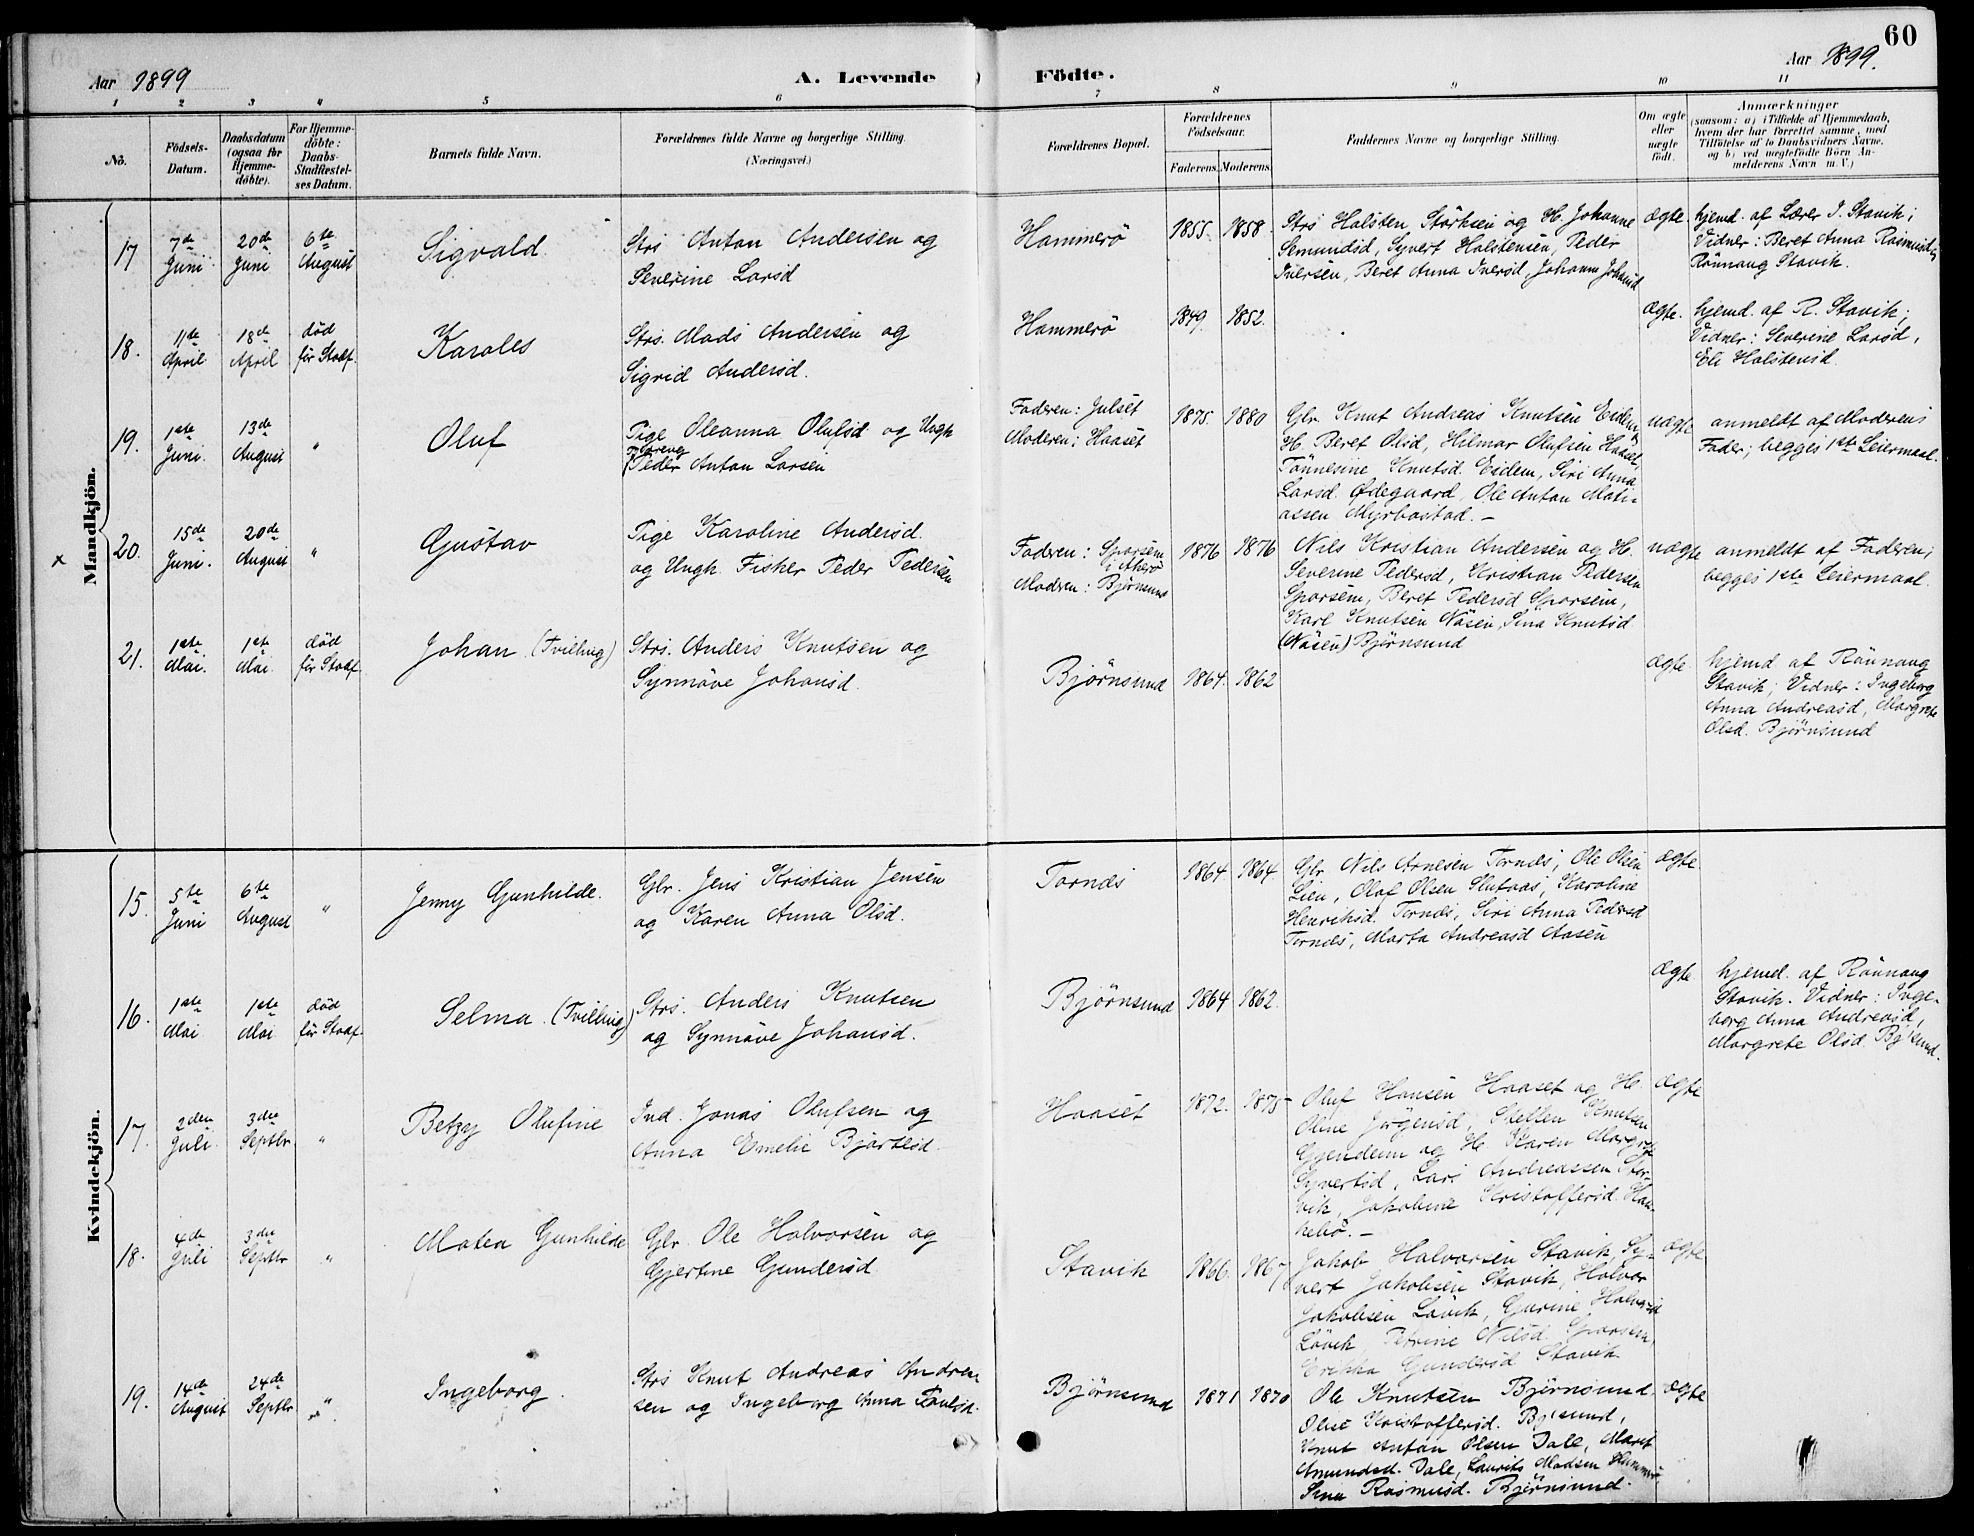 60
Aar 1899
A. Levende
Födte.
Aar 1899.
1 2 3 4 5 6 7 8 9 10 11
No.
Födsels-
Datum.
Daabsdatum
(ogsaa for
Hjemme-
döbte).
For Hjemme-
döbte:
Daabs-
Stadfæstel-
ses Datum.
Barnets fulde Navn.
Forældrenes fulde Navne og borgerlige Stilling.
(Næringsvei.)
Forældrenes Bopæl.
Forældrenes
Födselsaar.
Faderens. Moderens.
Faddernes Navne og borgerlige Stilling.
Om ægte
eller
uægte
födt.
Anmærkninger
(saasom: a) i Tilfælde af Hjemmedaab,
hvem der har forrettet samme, med
Tilföielse af to Daabsvidners Navne,
og b) ved uegtefödte Börn An-
melderens Navn m. V.)
Mandkjön.
17
7de
Juni
20de
Juni
6te
August
Sigvald
Strs Anton Andersen og
Severine Larsd
Hammerö
1855. 1858.
Strs Halsten Störksen og H. Johanne
Semundsd, Syvert Halstensen, Peder
Iversen, Beret Anna Iversd, Johanna Johansd
ægte.
hjemd. af Lærer I. Stavik;
Vidner: Beret Anna Rasmusd,
Rönnaug Stavik.
18.
11te
April
18de
April
död
för Stadf.
Karoles
Strs. Mads Andersen og
Sigrid Andersd.
Hammerö
1849. 1852.
ægte.
hjemd. af R. Stavik;
Vidner: Severine Larsd,
Eli Halstensd.
19.
1ste
Juni.
13de
August
"
Oluf
Pige Oleanna Olufsd og Ungk.
Peder Anton Larsen
Faderen: Julset
Moderen: Haaset
1875. 1880
Gbr. Knut Andreas Knutsen Eidem
H. Beret Olsd, Hilmar Olufsen Haaset,
Tönnesine Knutsd. Eidem, Siri Anna
Larsd. Ødegaard, Ole Anton Mati-
assen Myrbostad. —
uægte
anmeldt af Moderens
Fader; begges 1ste Leiermaal.
x
20.
15de
Juni.
20de
August
"
Gustav
Pige Karoline Andersd.
og Ungk. Fisker Peder Pedersen
Faderen: Sporsem
i Akerö
Moderen: Björnsund
1876 1876
Nils Kristian Andersen og H.
Severine Pedersd, Kristian Pedersen
Sporsem, Beret Pedersd Sporsem,
Karl Knutsen Näsen, Sina Knutsd
(Näsen) Bjørnsund
uægte
anmeldt af Faderen;
begges 1ste Leiermaal.
21.
1ste
Mai.
1ste
Mai.
död
för Stadf.
Johan (Tvilling)
Strs. Anders Knutsen og
Synnöve Johansd.
Bjørnsund
1864. 1862
ægte.
hjemd af Rönnaug
Stavik; Vidner: Ingeborg
Anna Andreasd, Margrete
Olsd. Björnsund
Kvindekjön.
15.
5te
Juni
6te
August
"
Jenny Gunhilde.
Gbr. Jens Kristian Jensen
og Karen Anna Olsd.
Tornæs
1864. 1864.
Gbr. Nils Arnesen Tornæs, Ole Olsen
Lien, Olaf Olsen Slutaas, Karoline
Henriksd. Tornæs, Siri Anna Pedersd
Tornæs, Marta Andreasd Aasen
ægte.
16.
1ste
Mai
1ste
Mai
död
för Stadf.
Selma. (Tvilling)
Strs. Anders Knutsen
og Synnöve Johansd.
Bjørnsund
1864 1862.
ægte.
hjemd. af Rönnaug
Stavik. Vidner: Inge-
borg Anna Andreasd,
Margrete Olsd. Bj'sund.
17.
2den
Juli.
3die
Septbr.
"
Betzy Olufine
Ind. Jonas Olufsen og
Anna Emelie Bjartesd.
Haaset
1872. 1875
Oluf Hansen Haaset og H.
Oline Jörgensd, Steffen Knutsen
Gjendem og H. Karen Margrete
Syvertsd, Lars Andreassen Stor-
vik, Jakobine Kristoffersd. Hau-
kebö. —
ægte
18.
4de
Juli
3die
Septbr
"
Matea Gunhilde
Gbr. Ole Halvorsen og
Gjertine Gundersd
Stavik
1866. 1867
Jakob Halvorsen Stavik, Sy-
vert Jakobsen Stavik, Halvor
Jakobsen Lövik, Gurine Halvorsd
Lövik, Petrine Nilsd. Sporsem,
Erikka Gundersd Stavik
ægte
19.
14de
August
24de
Septbr.
"
Ingeborg.
Strs Knut Andreas Andrea
sen og Ingeborg Anna Paulsd.
Bjørnsund
1871 1870
Ole Knutsen Bjørnsund.
Oline Kristoffersd. Bj'sund,
Knut Anton Olsen Dale, Marit
Amundsd. Dale, Laurits Madsen Hammerö
Sina Rasmusd. Bjørnsund.
ægte